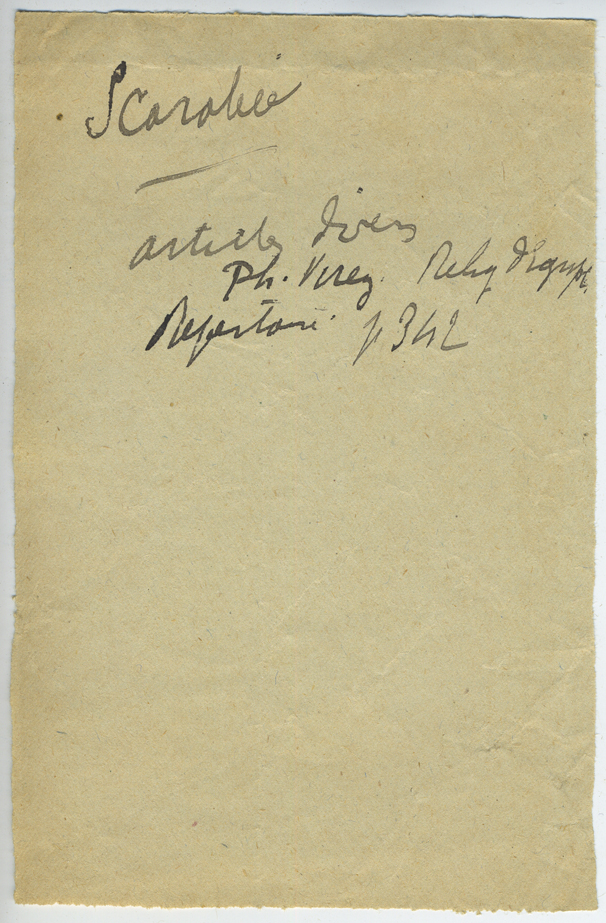 Scarabée
articles divers
Ph. Virey. Relig d'Egypt.
Repertoire. p 342